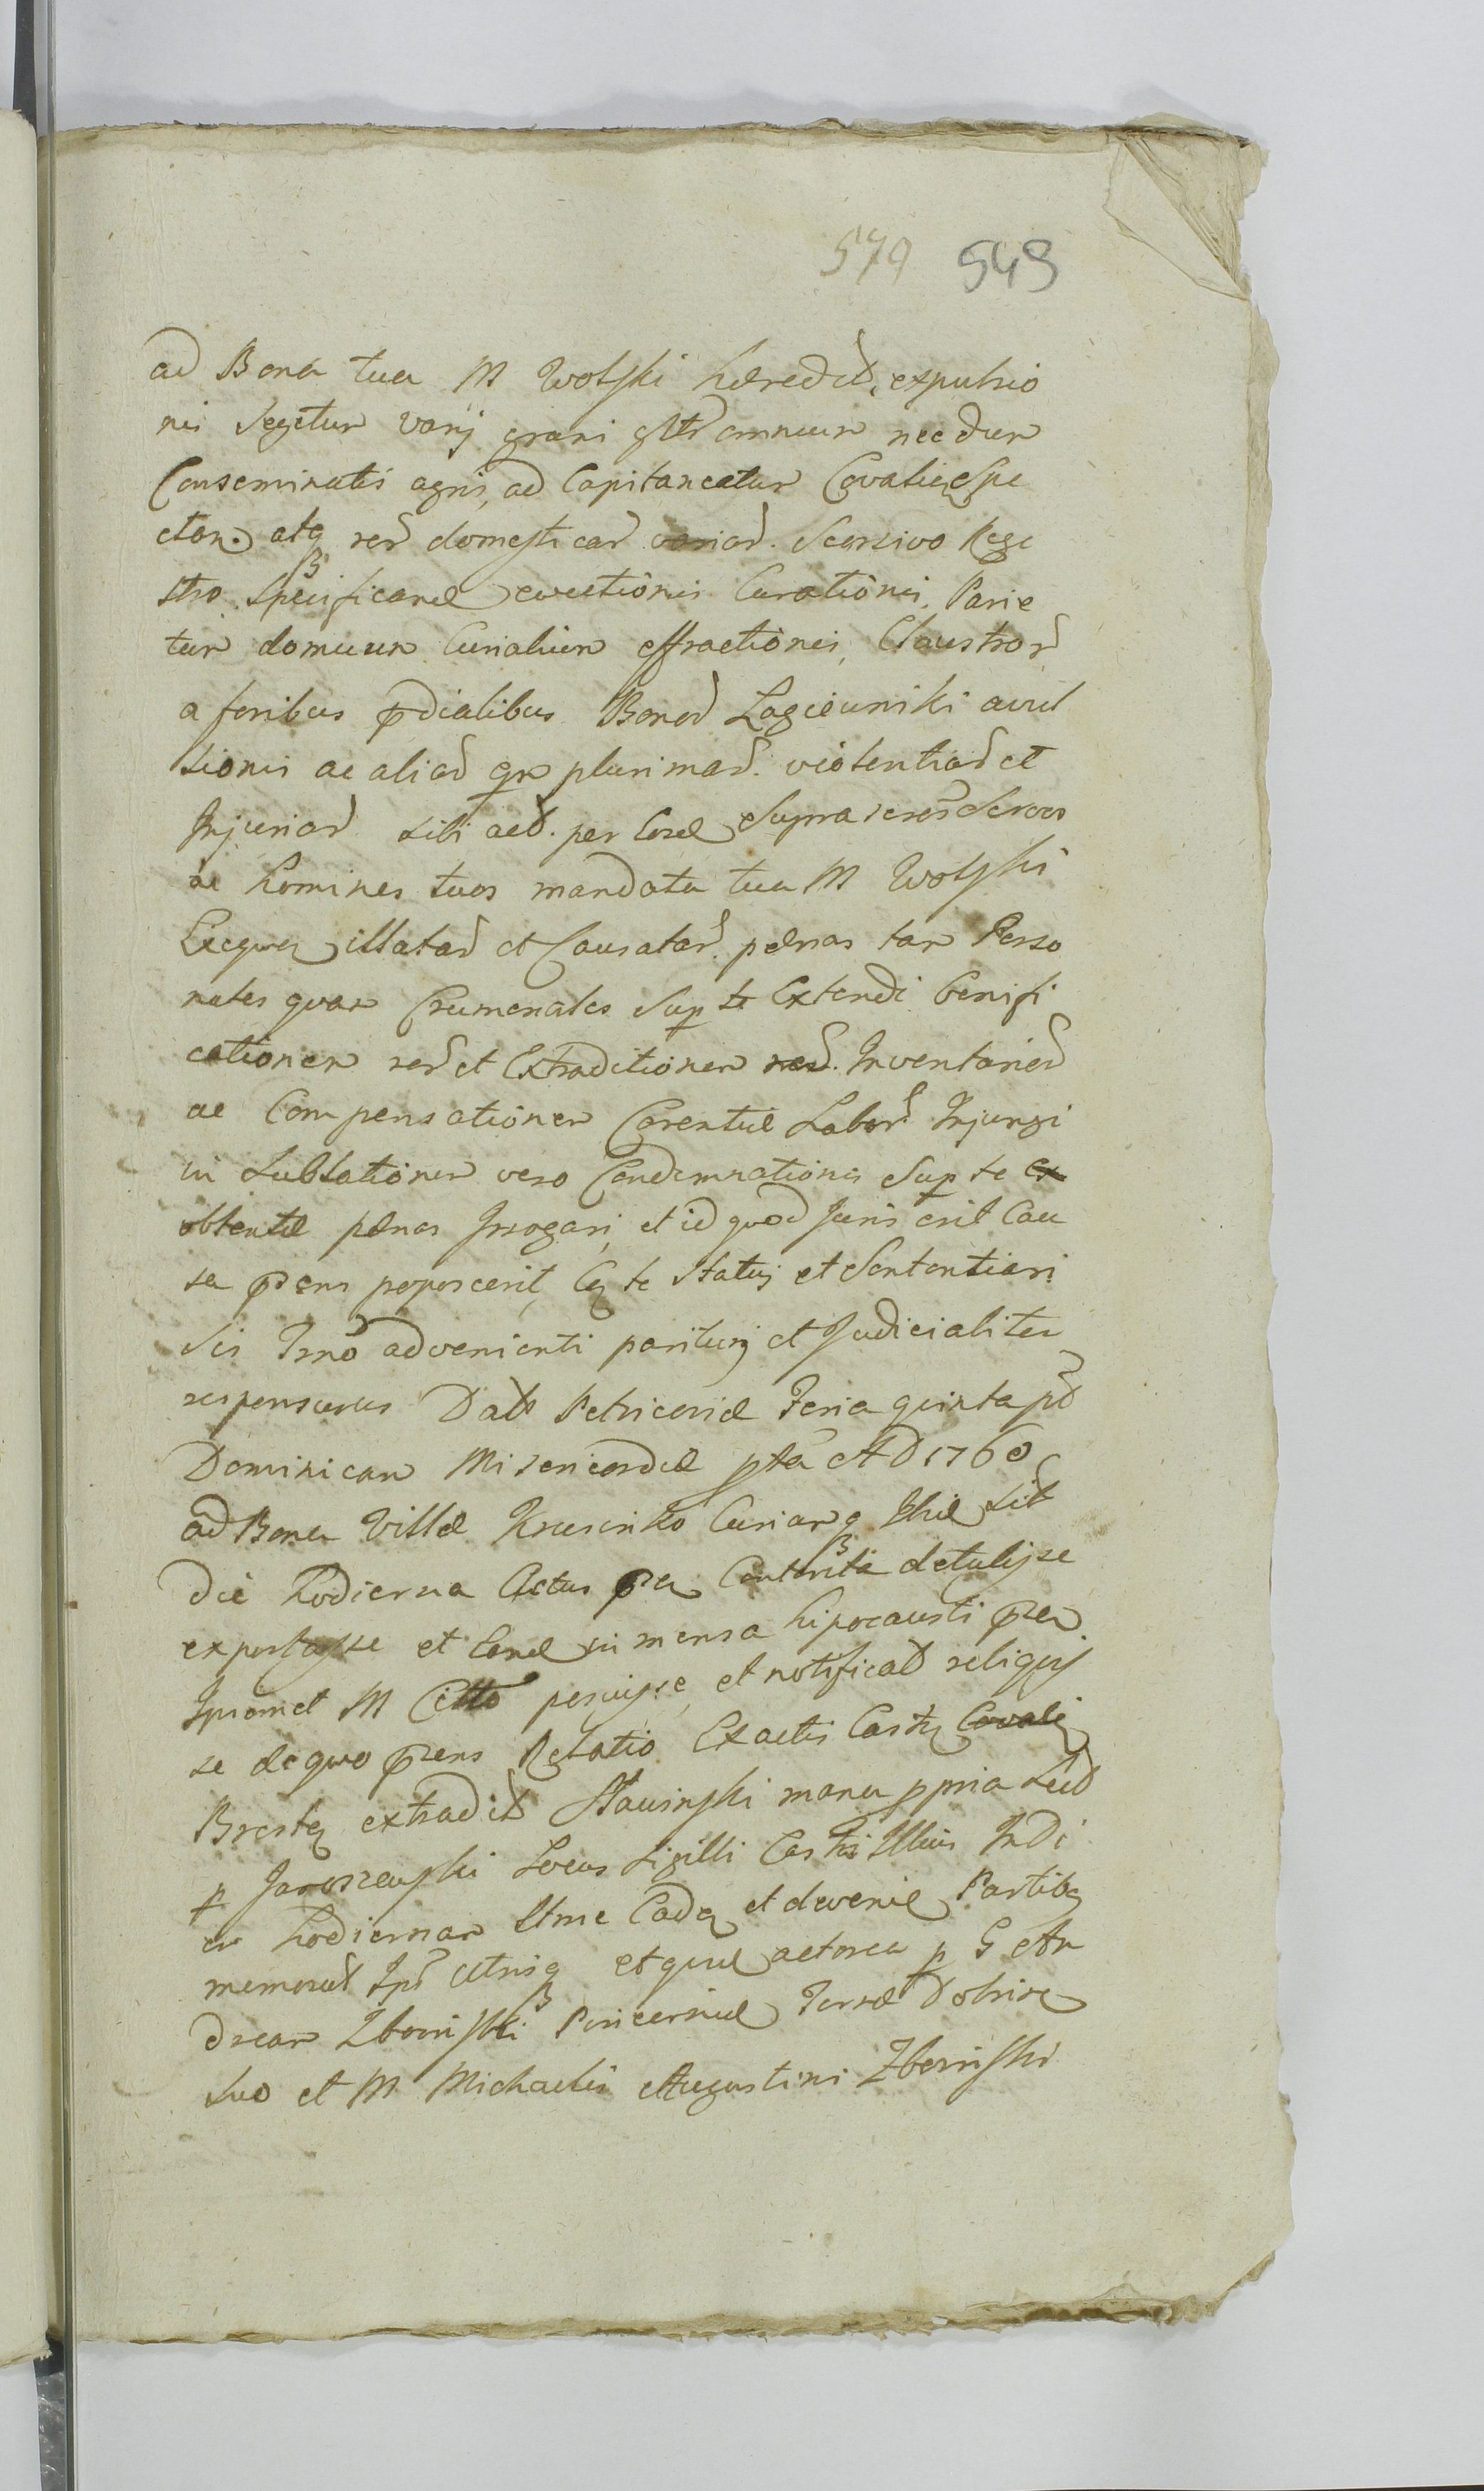 579 549
ad Bona tua M Wolski hæredit, expulsio
nis Segetum varij grani omnium necdum
Conseminatis agris, ad Capitaneatum Covalien Spe
ctan. atq rer domesticar variar. Scorsivo Rege
stro Specificarum evectionis Curationis, Parie
tum domuum Curialium effractionis, Claustror
a foribus prdialibus Bonor Łagiewniki avul
sionis ac aliar qm plurimar. violentiar et
Injuriar sibi act. per Cosd Suprascros Servos
ac homines tuos mandata tua M Wolski
illatar et Causatar. pænas tam Perso
nales quam Crumenales Sup te Extendi bonifi
cationem rer et Extraditionem rer. Inventarior
ac Compensationem Carentiæ Labor Injungi
in Sublationem vero Condemnationis Sup te ex
obtentæ pænas Irrogari, et id quod Juris erit Cau
sa prens poposcerit, Cq te Statuj et Sententiari
Sis Trno advenienti pariturq et Judicialiter
responsurus Datt Petricoviæ Feria quinta pt
Dominicam Misericordiæ pta A D 1760
ad Bona Villæ Kruszinko Curiamq Ibid Sit
die hodierna Actus prn Contenta detulisse
exportasse et Cond in mensa hipocausti prn
Ipsomet M Citto posuisse, et notificat reliquis
se de quo prens Relatio Ex actis Castrq Covali
Brestq extradit Stawinski manu ppria Lect
p Jaroszewski Locus Sigilli Castri Illius Indi
em hodiernam Trme Cadq et deveniæ Partibq
memorat Ipi Utrisq et quidem actorea p G An
dream Zboinski Pincernæ Terræ Dobrinq
suo et M Michaelis Augustini Zboinski